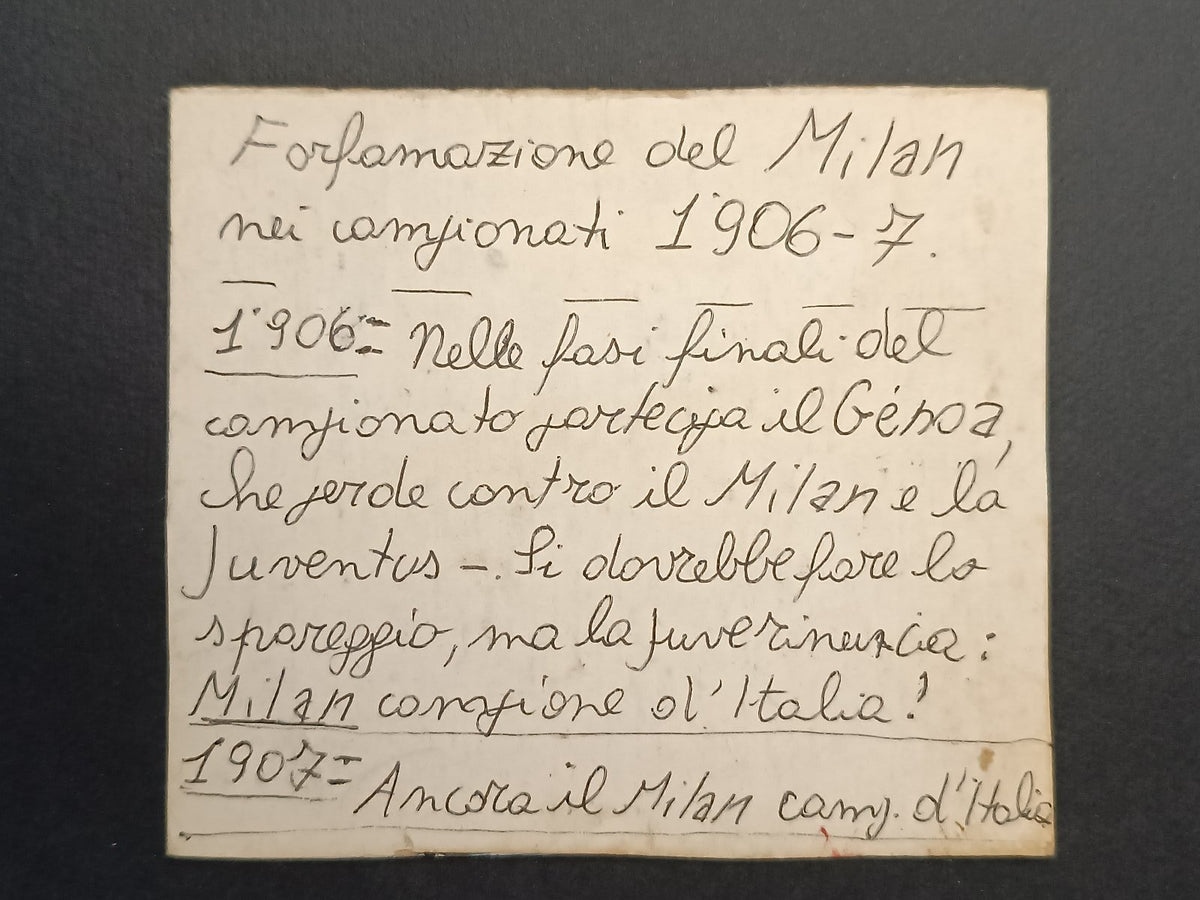 Forfamazione del Milan
nei campionati 1906-7.
1906= Nelle fasi finali del
campionato partecipa il Génoa,
che perde contro il Milan e la
Juventus -. Si dovrebbe fare lo
spareggio, ma la Juve rinuncia:
Milan campione d'Italia!
1907= Ancora il Milan camp. d'Italia